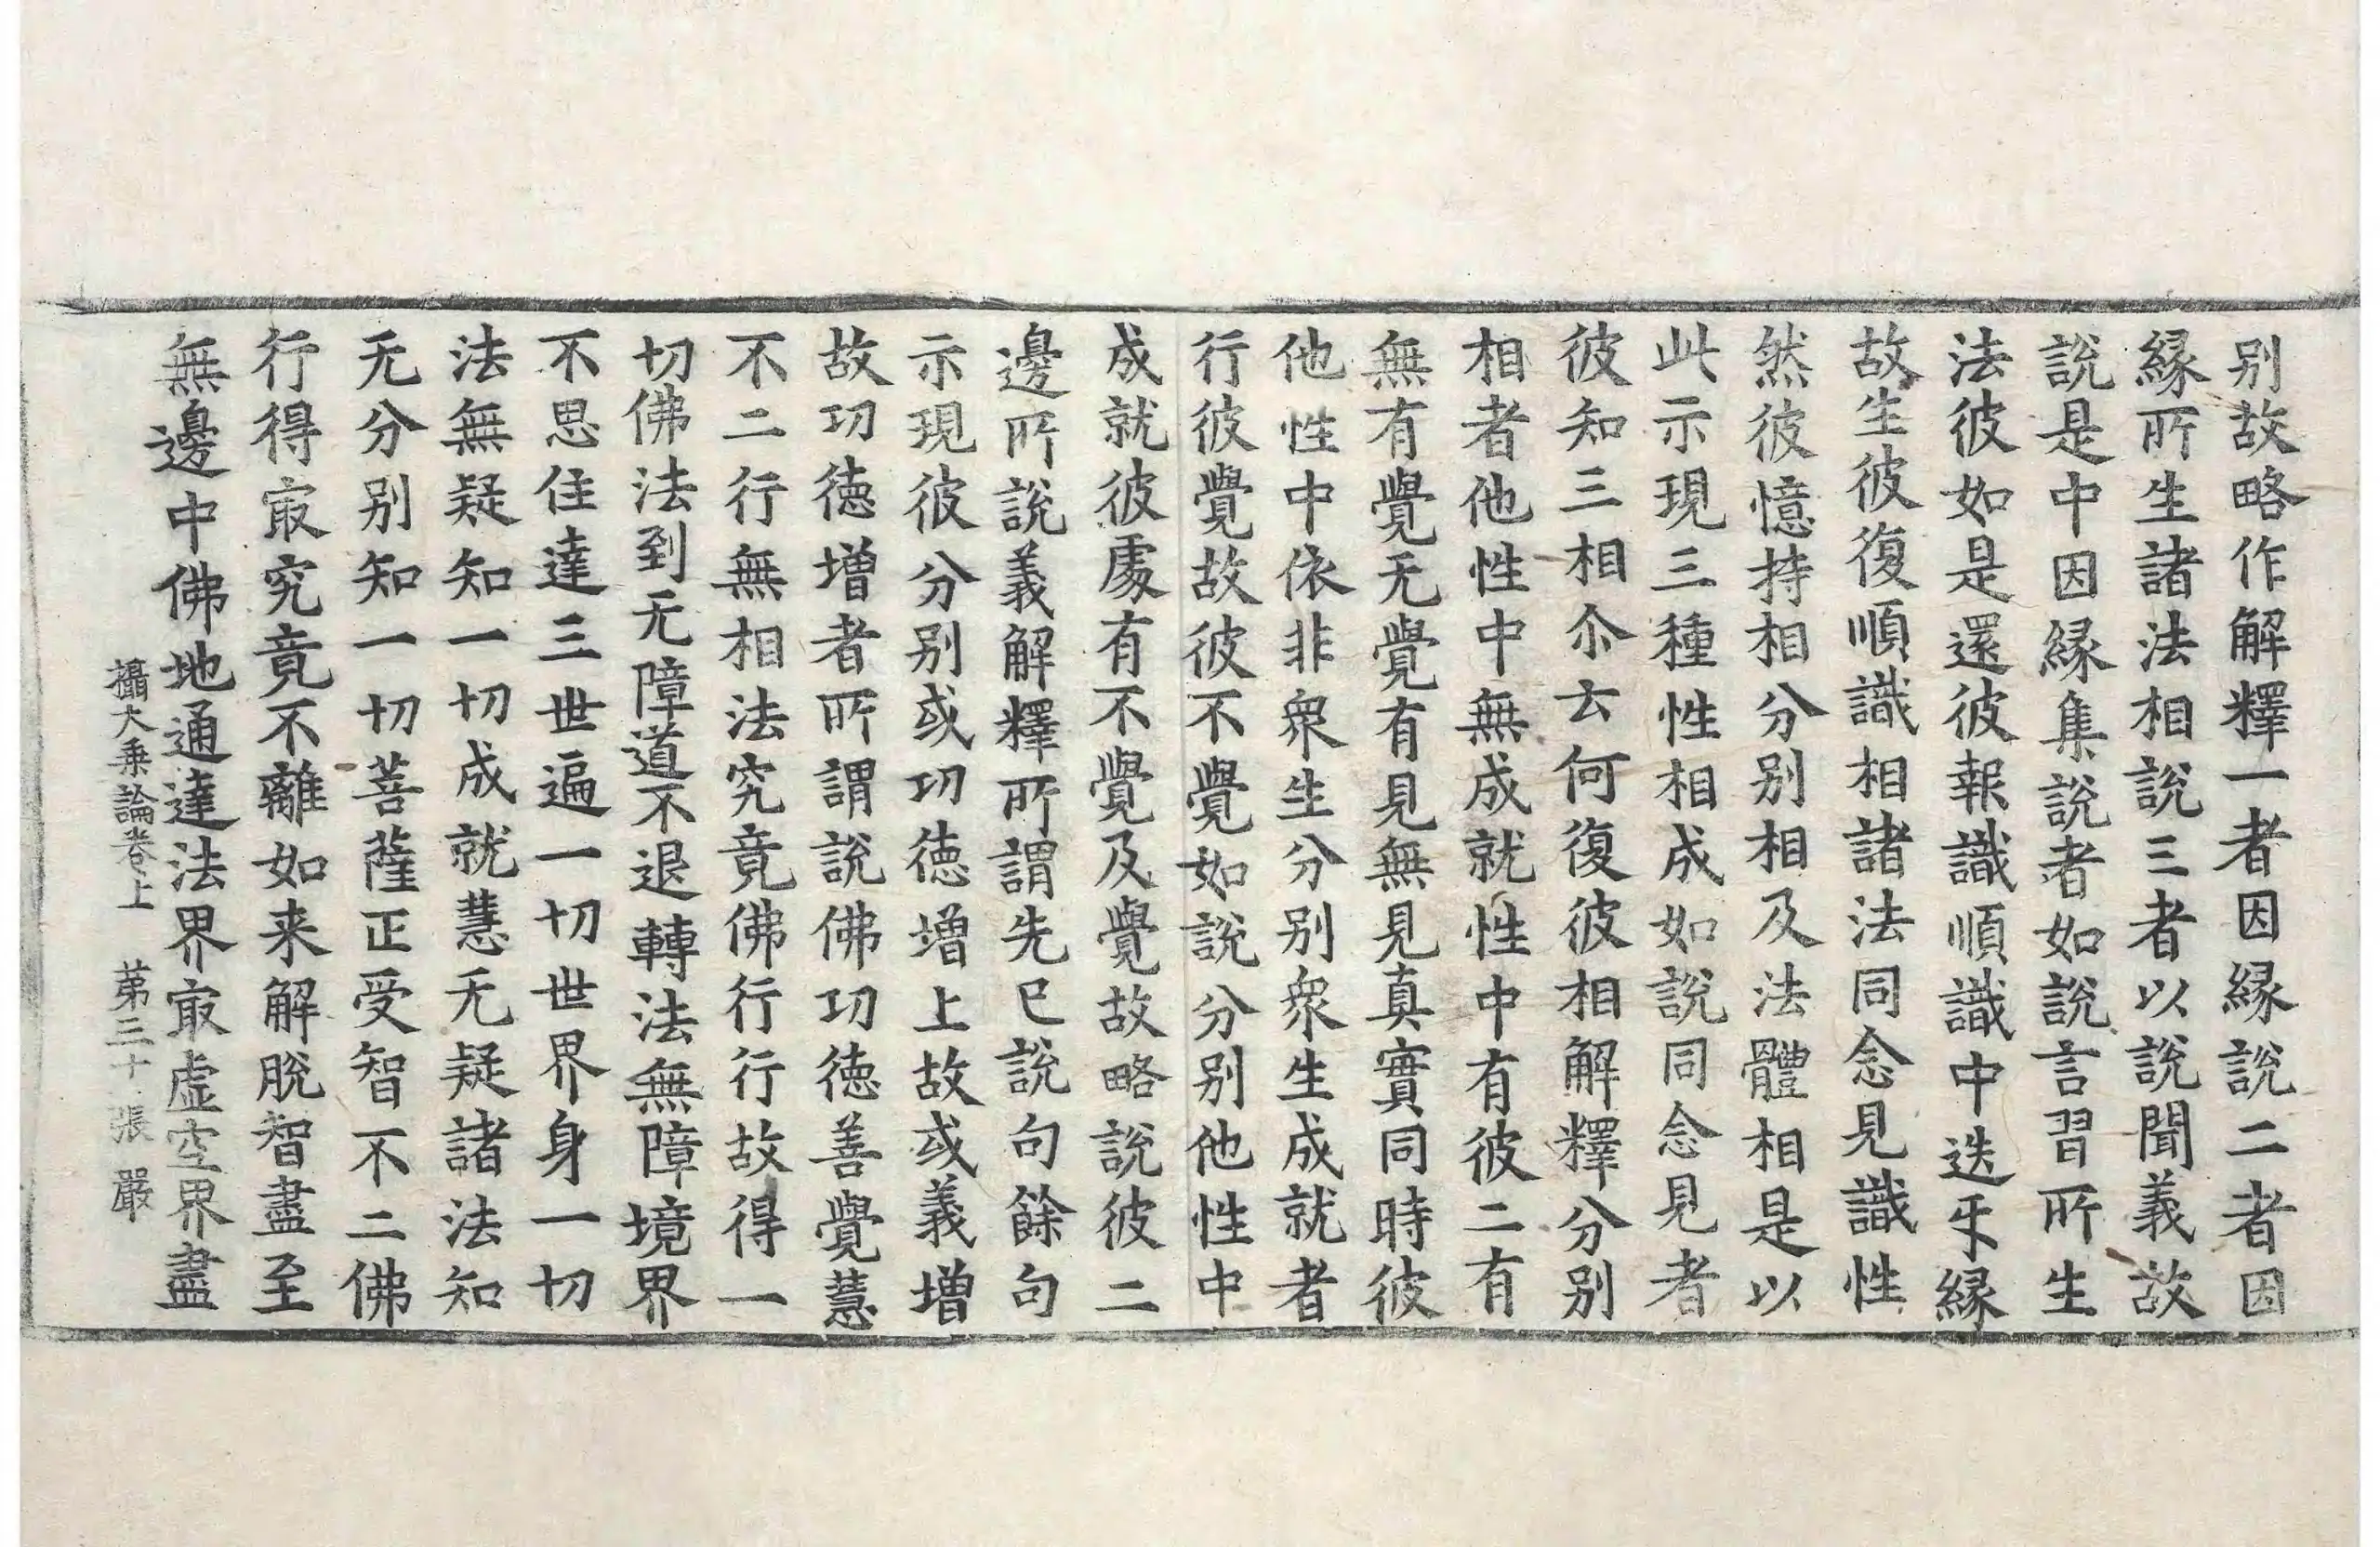 别故略作解釋一者因縁說二者因
縁所生諸法相說三者以說聞義故
說是中因縁集說者如說言習所生
法彼如是還彼報識順識中迭㸦縁
故生彼復順識相諸法同念見識性
然彼憶持相分别相及法體相是以
此示現三種性相成如說同念見者
彼知三相尒云何復彼相解釋分别
相者他性中無成就性中有彼二有
無有覺无覺有見無見真實同時彼
他性中依非衆生分别衆生成就者
行彼覺故彼不覺如說分别他性中
成就彼處有不覺及覺故略說彼二
邊所說義解釋所謂先已說句餘句
示現彼分别或功徳增上故或義增
故功徳增者所謂說佛功徳善覺慧
不二行無相法究竟佛行行故得一
切佛法到无障道不退轉法無障境界
不思住達三世遍一切世界身一切
法無疑知一切成就慧无疑諸法知
无分别知一切菩薩正受智不二佛
行得㝡究竟不離如来解脫智盡至
無邊中佛地通達法界㝡虚空界盡
攝大乗論卷上 苐三十張 嚴